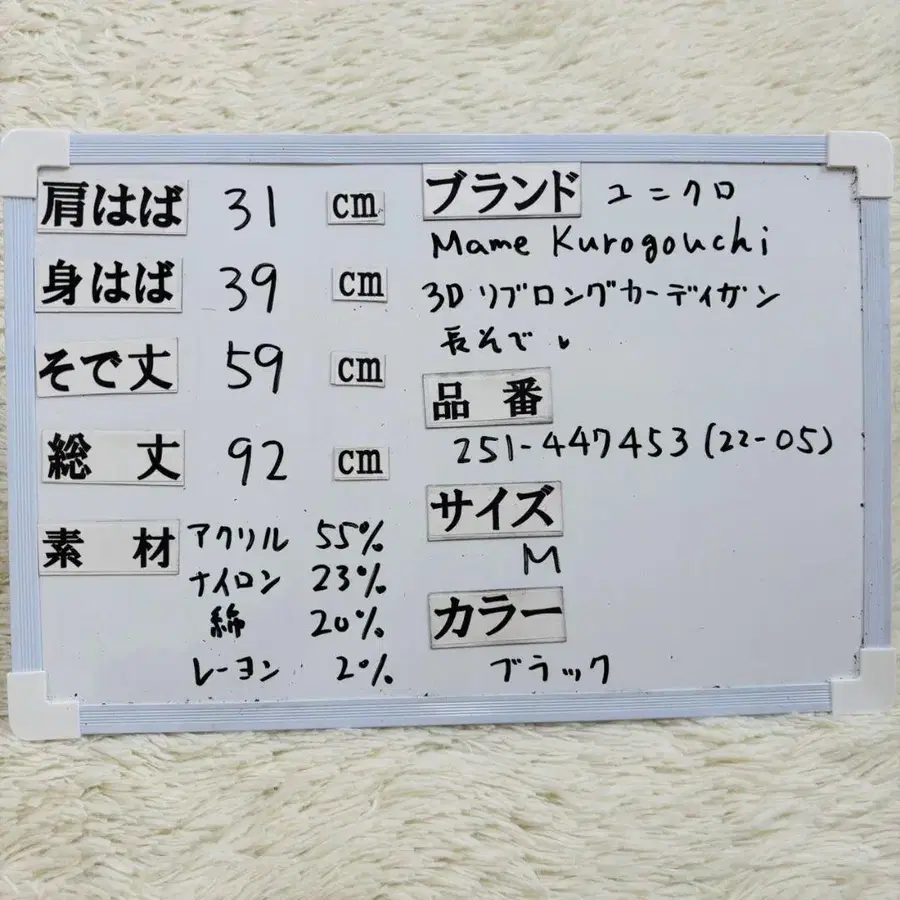 肩はば 31 cm
身はば 39 cm
そで丈 59 cm
総丈 92 cm
素材 アクリル 55%
ナイロン 23%
綿 20%
レーヨン 2%
ブランド ユニクロ
Mame Kurogouchi
3Dリブロングカーディガン
長そで
品番
251-447453(22-05)
サイズ
M
カラー
ブラック